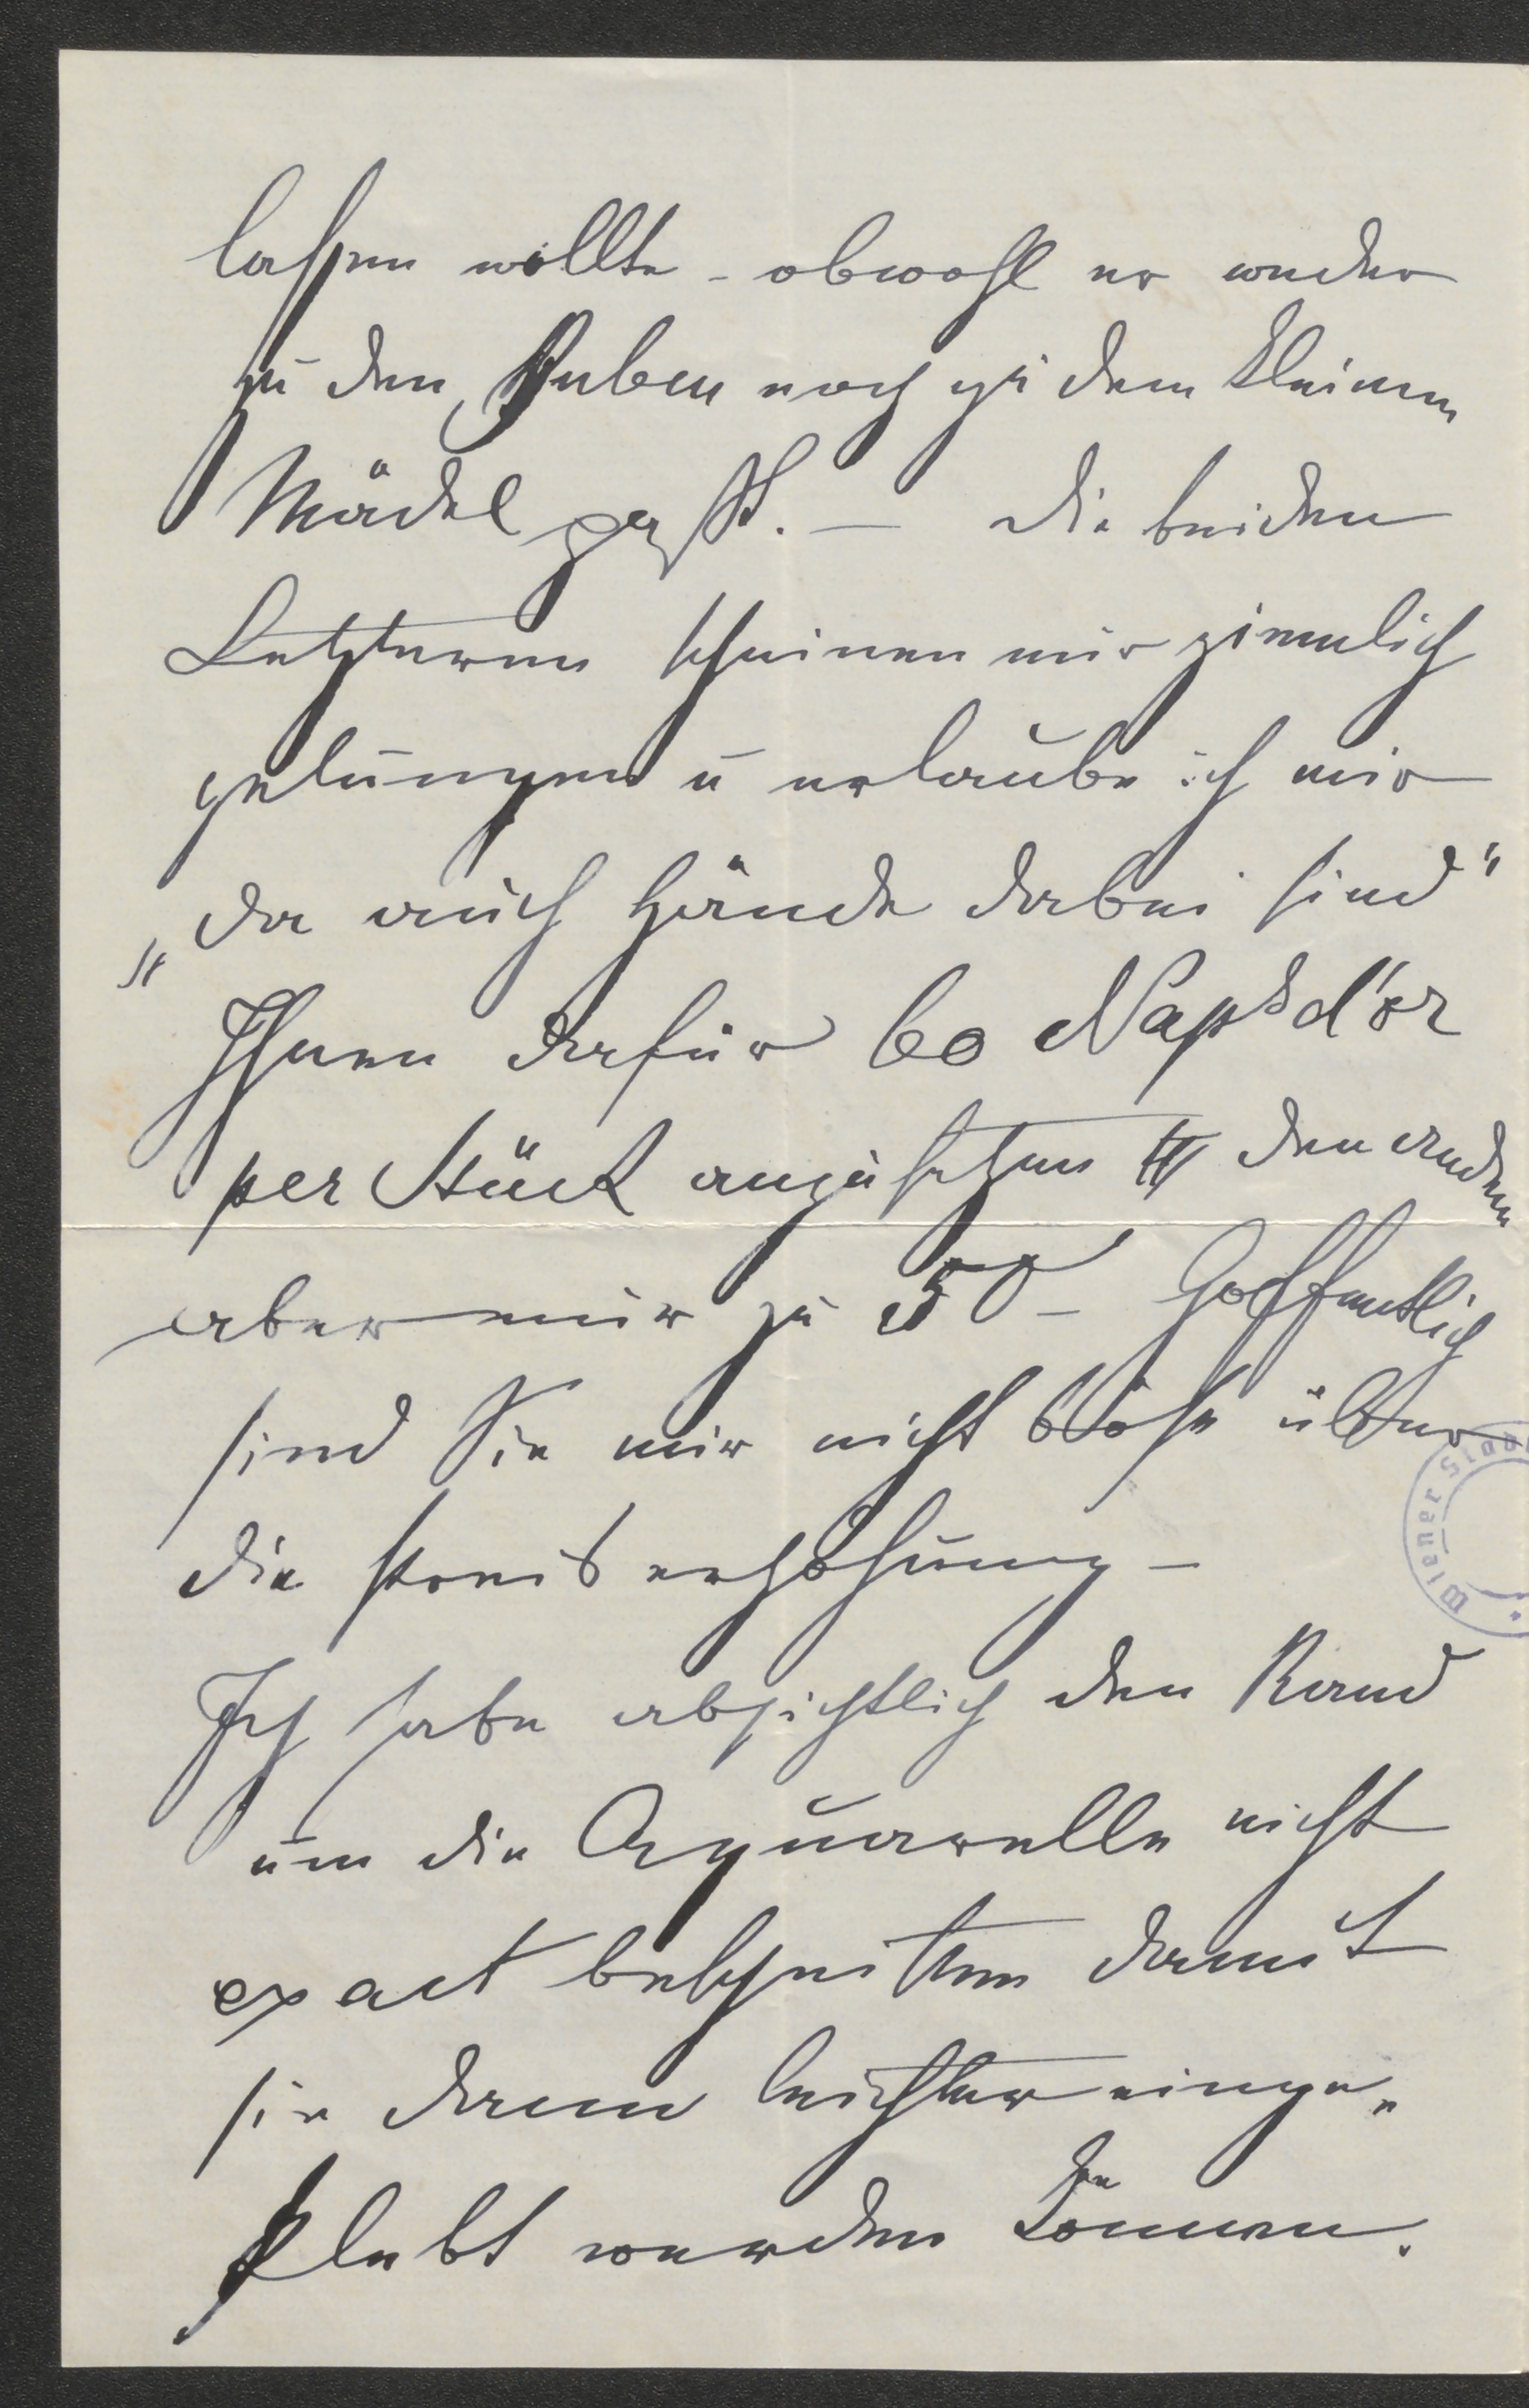 lassen wollte – obwohl er weder
zu den Buben noch zu dem kleinen
Mädel passt. – Die beiden
Letzteren scheinen mir ziemlich
gelungen u erlaube ich mir
„da auch Hände dabei sind"
Ihnen dafür 60 Naps d'or
per Stück anzusetzen den andern
aber nur zu 50 – Hoffentlich
sind Sie mir nicht böse über
die Preis erhöhung –
Ich habe absichtlich den Rand
um die Aquarelle nicht
exact beschnitten damit
sie dann leichter einge„
klebt werden können.
Wiener Stadt